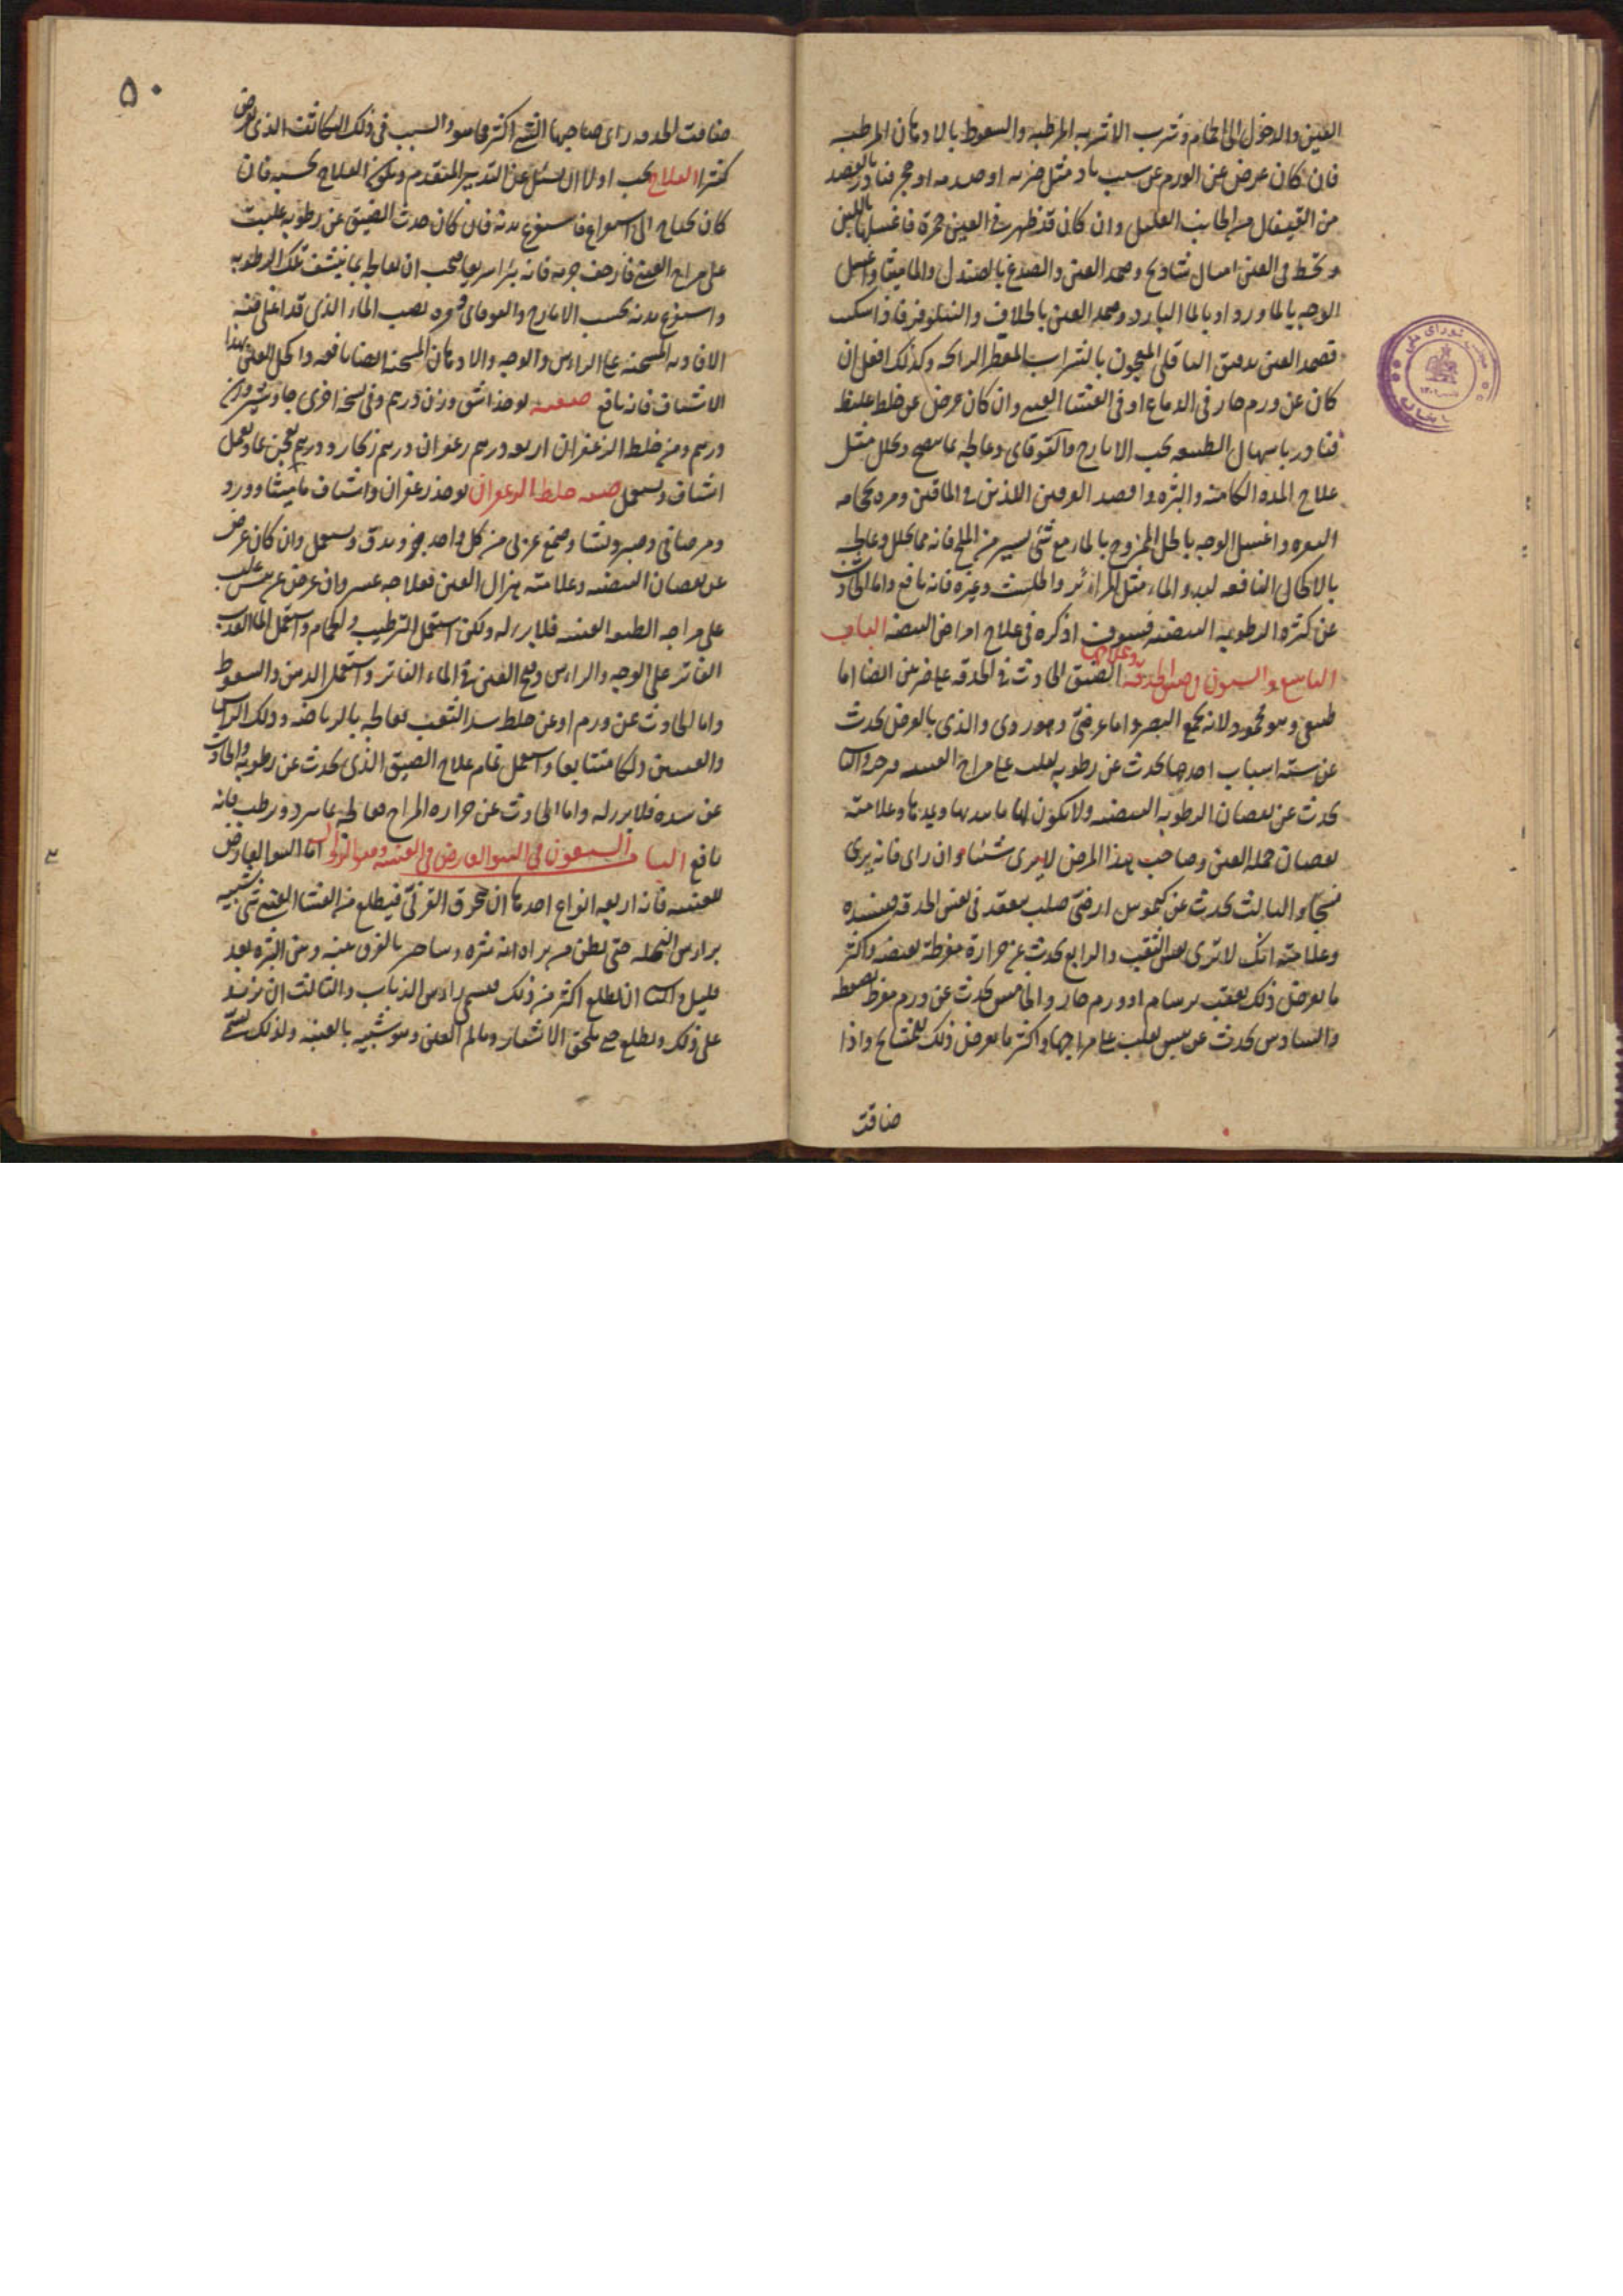 العين والدخول الى الحمام وشرب الاشربه المرطبه والسعوط بالادهان المرطبه
فان كان عرض عن الورم عن سبب باد مثل ضربه او صدمه او حجر فبادر بالفصد
من القيفال من الجانب العليل وان كان قد ظهرت في العين حمرة فاغسلها باللبن
وتخط في العين اشياف وضمد العين والصدغ بالصندل والماميثا واغسل
الوجه بالماورد او بالماء البارد وضمد العين بالخلاف والنيلوفر فاذا سكن
فضمد العين بدقيق الباقلى المعجون بالشراب العطر الرايحه وكذلك افعل ان
كان عن ورم حار في الدماغ او في الغشا العيني وان كان عرض عن خلط غليظ
فبادر باسهال الطبيعه بحب الايارج والقوقاى وعالجه بما يفتح ويحلل مثل
علاج المده الكامنه والبثره وافصد العرقين اللذين في الماقين ومره بحجامه
النقره واغسل الوجه بالخل الممزوج بالماء مع شئ يسير من الملح فانه مما يحلل وعالجه
بالاكحال النافعه لبدو الماء مثل المراير والحلتيت وغيره فانه نافع واما الحادث
عن كثرة الرطوبه البيضيه فسوف اذكره في علاج امراض البيضيه الباب
التاسع والستون في ضيق الحدقه وعلاجها الضيق الحادث في الحدقه على ضربين ايضا اما
طبيعي وهو محمود لانه يجمع البصر واما عرضي وهو ردى والذى بالعرض يحدث
عن سته اسباب احدها يحدث عن رطوبه يغلب على مزاج العينيه فيرخيه والثانى
يحدث عن نقصان الرطوبه البيضيه ولا يكون لها ما يمددها وعلامته
نقصان جمله العين وصاحب هذا المرض لا يرى شيئا وان راى فانه يرى
شبحا والثالث يحدث عن كيموس ارضى صلب ينعقد في نفس الحدقه فيسده
وعلامته انك لا ترى نفس الثقب والرابع يحدث عن حرارة مفرطة يقبضه واكثر
ما يعرض ذلك بعقب برسام او ورم حار والخامس يحدث عن ورم مفرط يضغطه
والسادس يحدث عن يبس يغلب على مزاجها واكثر ما يعرض ذلك للمشايخ واذا
ضاقت
۵۰
ضاقت الحدقه راى صاحبها الشئ اكثر مما هو والسبب في ذلك التكاثف الذى يعرض
كثيرا العلاج يجب اولا ان تسئل عن التدبير المتقدم ويكون العلاج بحسبه فان
كان يحتاج الى استفراغ فاستفرغ بدنه فان كان حدث الضيق عن رطوبه غلبت
على مزاج العينيه فارخت جرمه فانه يبرا سريعا فيجب ان تعالجه بما ينشف تلك الرطوبه
واستفرغ بدنه بحب الايارج والقوقاى ومره بصب الماء الذى قد اغلى فيه
الافاويه المسخنه على الراس والوجه والادهان المسخنه ايضا نافعه واكحل العين بهذا
الاشياف فانه نافع صفته يوخذ اشق وزن درهم وفي نسخه اخرى جاوشير وزن
درهم ومن خلط الزعفران اربعه درهم زعفران درهم زنجار ودرهم يعجن بماء ويعمل
اشياف ويستعمل صفه خلط الزعفران يوخذ زعفران واشياف ماميثا وورد
ومر صافى وصبر ونشا وصمغ عربى من كل واحد جزو يدق ويستعمل وان كان عرض
عن نقصان البيضيه وعلامته هزال العين فعلاجه عسر وان عرض عن يبس غلب
على مزاجه الطبقه العينيه فلا برء له ولكن استعمل الترطيب والحمام واستعمل الماء العذب
الفاتر على الوجه والراس وفتح العين في الماء الفاتر واستعمل الدهن والسعوط
واما الحادث عن ورم او عن خلط سد الثقب فعالجه بالرياضه ودلك الراس
والعينين دلكا متتابعا واستعمل تمام علاج الضيق الذى يحدث عن رطوبه والحادث
عن سده فلا برء له واما الحادث عن حراره المزاج فعالجه بما يبرد ويرطب فانه
نافع الباب السبعون في النتو العارض في العينيه وهو الزوال اما النتو العارض
للعينيه فانه اربعه انواع احدها ان يخرق القرنى فيطلع من الغشا العينى شئ شبيه
براس النمله حتى يظن من يراه انه بثره وسامر بالفرق بينه وبين البثره بعد
قليل والثانى ان يطلع اكثر من ذلك فيسمى راس الذباب والثالث ان يزيد
على ذلك ويطلع حتى يلحق الاشفار ويالم العين وهو شبيه بالعنبه ولذلك يسمى